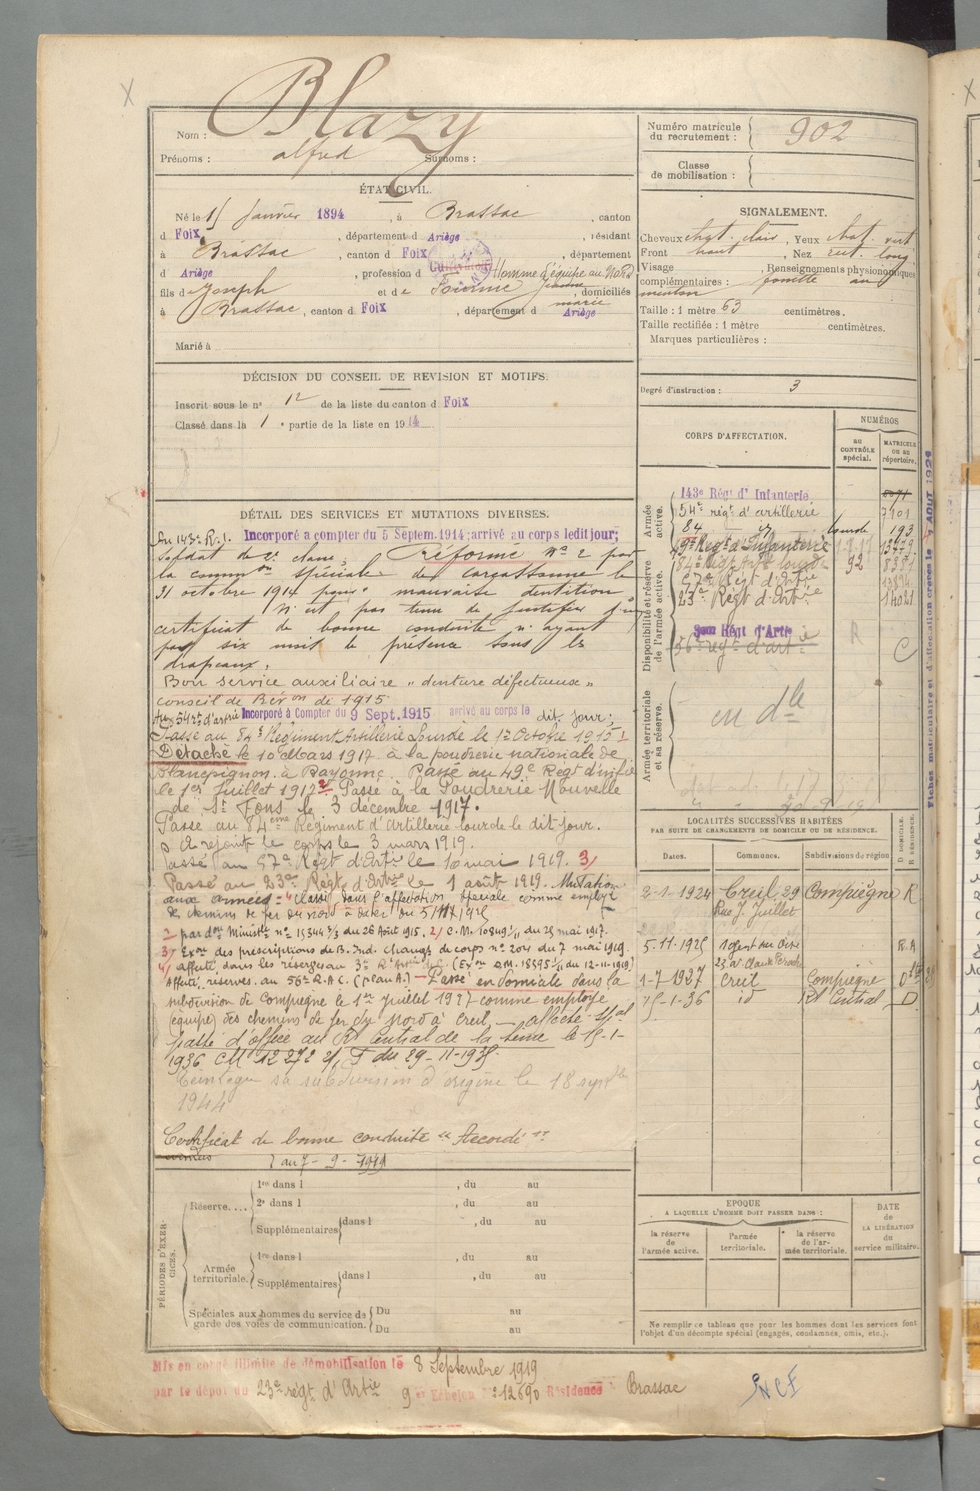 Nom : Blazy
Prénoms : alfred Surnoms :
ÉTAT CIVIL.
Né le 15 Janvier 1894, à Brassac, canton
d Foix, département d Ariège, résidant
à Brassac, canton d Foix, département
d Ariège, profession d Cultivateur Homme d'équipe au Nord
fils de Joseph et de Jeanne marie, domiciliés
à Brassac, canton d Foix, département d Ariège
Marié à
DÉCISION DU CONSEIL DE REVISION ET MOTIFS.
Inscrit sous le n° 12 de la liste du canton d Foix
Classé dans la 1e partie de la liste en 1914
DÉTAIL DES SERVICES ET MUTATIONS DIVERSES.
Au 143e R.I. Incorporé à compter du 5 Septem. 1914; arrivé au corps ledit jour;
Soldat de 2e classe, Réformé n° 2 par
la common spéciale de Carcassonne le
31 octobre 1914 pour mauvaise dentition
N'est pas tenu de justifier d'un
certificat de bonne conduite n'ayant
pas six mois de présence sous les
drapeaux.
Bon service auxiliaire "denture défectueuse"
conseil de Révon de 1915
Au 54e rt d'artrie Incorporé à Compter du 9 Sept. 1915 arrivé au corps le dit jour;
Passé au 84e Régiment Artillerie Lourde le 1er Octobre 1915
Détaché le 10 Mars 1917 à la poudrerie nationale de
Blancpignon à Bayonne. Passé au 49e Régt d'infie
le 1er Juillet 1917 2/ Passé à la Poudrerie Nouvelle
de St Fons le 3 décembre 1917.
Passé au 84eme Régiment d'Artillerie lourde le dit jour.
A rejoint le corps le 3 mars 1919.
Passé au 57e Régt d'Artie le 10 mai 1919. 3/
Passé au 23e Régt d'Artie le 1 août 1919. Mutation
aux armées: 4 Classé dans l'affectation spéciale comme employé
de chemins de fer du nord à dater du 5/11/1925
1/ par don Ministlle n° 15344 3/3 du 26 Août 1915. 2/ C.M. 10849 1/11 du 25 mai 1917.
3/ Exon des prescriptions du B. Ind. Changt de corps n° 204 du 7 mai 1919.
4/ affecté dans les réserves au 3e
Affecté réserves au 56e R.A.C. (Plan A.) - Passé en domicile dans la
subdivision de Compiègne le 1er juillet 1927 comme employé
(équipe) des chemins de fer du Nord à Creil, — affecté spal
passé d'office au Rt Central de la Seine le 15-1-
1936 CM 12 272 2/T du 29-11-1935
Réintègre sa subdivision d'origine le 18 septbre
1944
Certificat de bonne conduite "Accordé"
7-9-1919
PÉRIODES D'EXERCICES.
Réserve....
1re dans l , du au
2e dans l , du au
Supplémentaires dans l , du au
Armée territoriale.
1re dans l , du au
Supplémentaires dans l , du au
Spéciales aux hommes du service de garde des voies de communication.
Du au
Du au
Mis en congé illimité de démobilisation le 8 Septembre 1919
par le dépôt du 23e régt d'Artie 9e Echelon n° 12690 Résidence Brassac
Numéro matricule du recrutement : 902
Classe de mobilisation :
SIGNALEMENT.
Cheveux chat. clair, Yeux chat. vert
Front haut, Nez rect. long
Visage , Renseignements physionomiques
complémentaires : fossette au
menton
Taille : 1 mètre 63 centimètres.
Taille rectifiée : 1 mètre centimètres.
Marques particulières :
Degré d'instruction : 3
CORPS D'AFFECTATION.
NUMÉROS
au CONTRÔLE spécial.
MATRICULE ou au répertoire.
Armée active.
143e Régt d'Infanterie.
54e régt d'artillerie 7101
84 " lourde 193
Disponibilité et réserve de l'armée active.
49e Régt d'Infanterie
84e Régt Artie lourde 92 8381
57e Régt d'Artie
23e Régt d'Artie 14021
Régt d'Artie
56e régt d'artie R C
Armée territoriale et sa réserve.
en dle
Fiches matriculaire et d'affectation créées le 7 AOUT 1924
LOCALITÉS SUCCESSIVES HABITÉES
PAR SUITE DE CHANGEMENTS DE DOMICILE OU DE RÉSIDENCE.
Dates. Communes. Subdivisions de région. D DOMICILE. R RÉSIDENCE.
2-1-1924 Creil 29 Rue J. Juillet Compiègne R
5.11-1925 Nogent sur Oise R.A
1-7-1937 Creil Compiègne D
15-1-36 id Rt Central D
EPOQUE
A LAQUELLE L'HOMME DOIT PASSER DANS :
la réserve de l'armée active.
l'armée territoriale.
la réserve de l'armée territoriale.
DATE de LA LIBÉRATION du service militaire.
Ne remplir ce tableau que pour les hommes dont les services font
l'objet d'un décompte spécial (engagés, condamnés, omis, etc.).